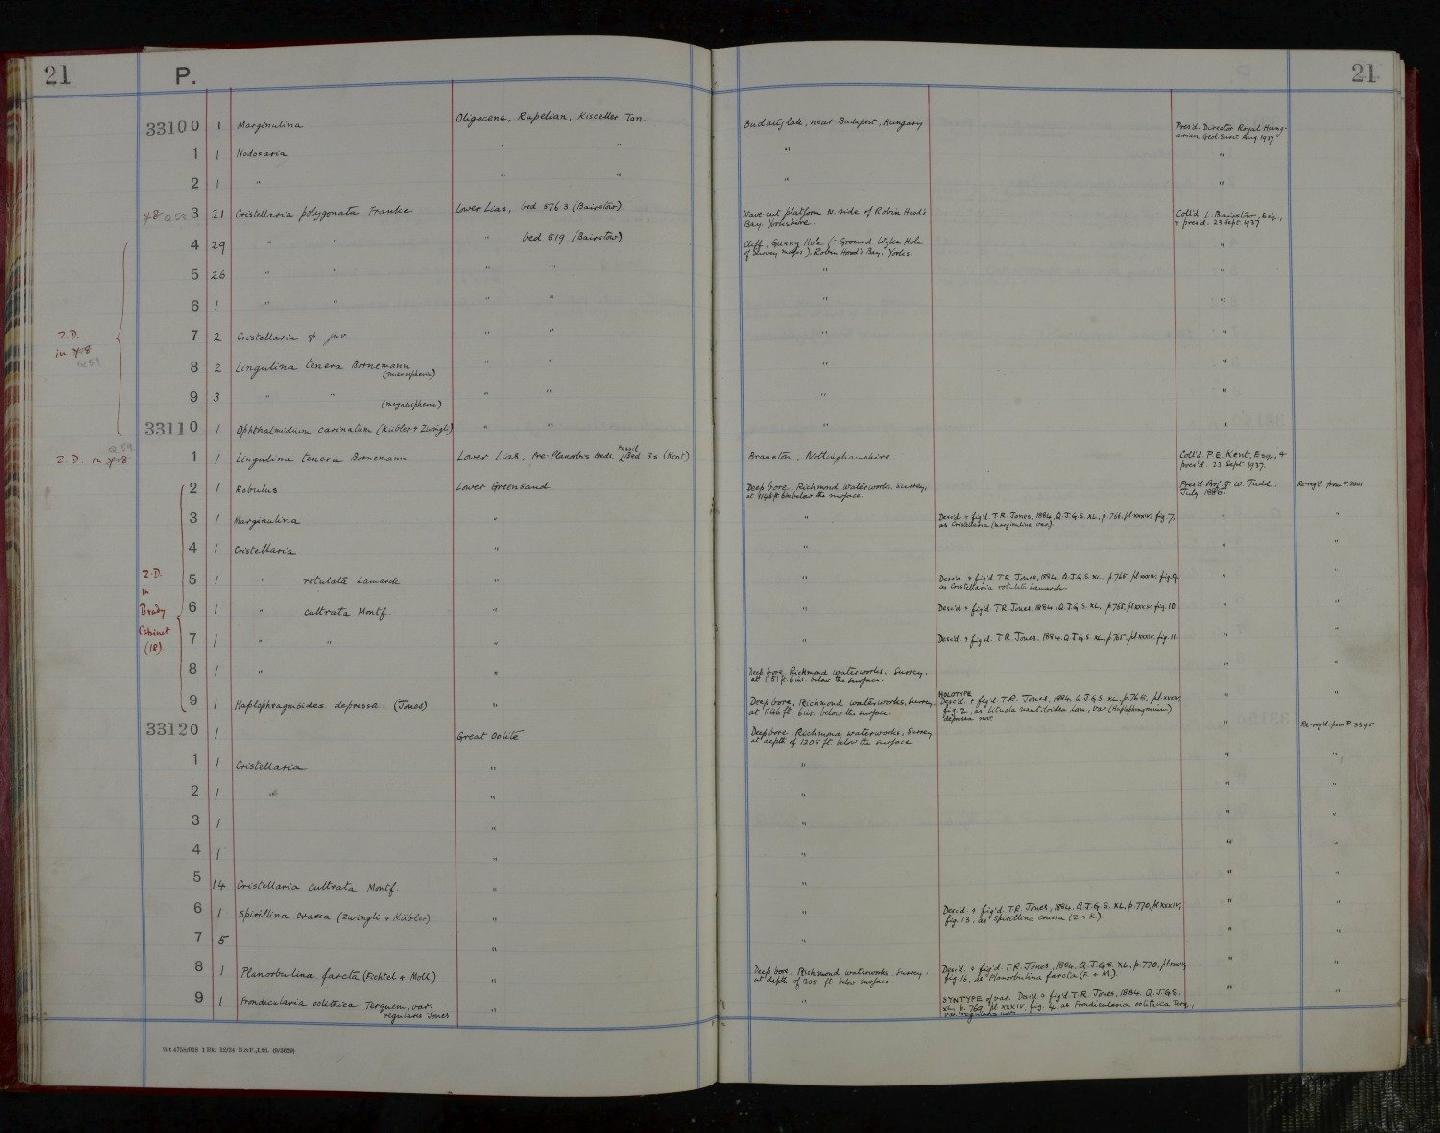 21 P. 21
33100 1 Marginulina Oligocene, Rupelian, Kisceller Ton. near Budapest, Hungary Pres'd. Director Royal Hung-
arian Geol. Surv. Aug. 1937
1 1 Nodosaria " " " "
2 1 " " " " "
3 21 Cristellaria polygonata Franke Lower Lias, bed 516 3 (Bairstow) Wave cut platform N. side of Robin Hood's
Bay. Yorkshire. Coll'd L. Bairstow, Esq.,
+ presd. 23 Sept. 1937
4 29 " " " bed 519 (Bairstow) Cliff, Gunny Hole (= Ground Wyke Hole
of Survey maps). Robin Hood's Bay. Yorks. "
5 26 " " " " " "
6 1 " " " " " "
7 2 Cristellaria " " " "
Z.D.
in
8 2 Lingulina tenera Bornemann
(microspheric) " " " "
9 3 " " (megalospheric) " " " "
33110 1 Ophthalmidium carinatum (Kübler + Zwingli) " " "
Z.D. in 1 1 Lingulina tenera Bornemann Lower Lias, Pre-Planorbis beds. Bed 33 (Kent) Nottinghamshire Coll'd P.E. Kent, Esq., +
pres'd. 23 Sept. 1937.
2 1 Robulus Lower Greensand Deep bore, Richmond waterworks. Surrey,
at 1146 ft 6 ins below the surface. Pres'd Prof. J. W. Judd.
July 1886.
3 1 Marginulina " " Descd. + fig'd. T.R. Jones, 1884, Q.J.G.S. XL, p. 766, pl. xxxiv, fig. 7,
as Cristellaria (marginuline var.) " "
4 1 Cristellaria " " " "
5 1 " rotulata Lamarck " " Descd. + fig'd T.R. Jones, 1884. Q.J.G.S. XL, p. 765 pl. xxxiv. fig. 9.
as Cristellaria rotulata Lamarck. " "
Z.D.
in
Brady
Cabinet
(18)
6 1 " cultrata Montf. " " Descd. + fig'd. T.R. Jones 1884. Q.J.G.S. XL, p. 765, pl. xxxiv. fig. 10 " "
7 1 " " " " Descd. + fig'd. T.R. Jones. 1884. Q.J.G.S. XL, p. 765, pl. xxxiv. fig. 11. " "
8 1 " " Deep bore, Richmond waterworks. Surrey.
at 1151 ft. 6 ins. below the surface. " "
9 1 Haplophragmoides depressa (Jones) " Deep bore, Richmond waterworks, Surrey,
at 1146 ft. 6 ins. below the surface. HOLOTYPE
Descd. + fig'd. T.R. Jones, 1884. Q.J.G.S. XL, p. 765, pl. xxxiv,
fig. 2, as Lituola nautiloidea Lam., var. (Haplophragmium)
depressa nov. " "
33120 1 Great Oolite Deep bore Richmond waterworks, Surrey
at depth of 1205 ft. below the surface " Re-reg'd. from P. 3345
1 1 Cristellaria " " " "
2 1 " " " " "
3 1 " " " "
4 1 " " " "
5 14 Cristellaria cultrata Montf. " " " "
6 1 Spirillina crassa (Zwingli + Kübler) " " Descd. + fig'd. T.R. Jones, 1884. Q.J.G.S. XL, p. 770, pl. xxxiv,
fig. 13, as Spirillina crassa (Z + K). " "
7 5 " " " "
8 1 Planorbulina farcta (Fichtel & Moll) " Deep bore. Richmond waterworks. Surrey.
at depth of 1205 ft below surface Descd. + fig'd. T.R. Jones, 1884. Q.J.G.S. XL, p. 770, pl. xxxiv,
fig. 16, as Planorbulina farcta (F. + M). " "
9 1 Frondicularia oolithica Terquem, var.
regularis Jones " " SYNTYPE of var. Descd. + fig'd T.R. Jones, 1884. Q.J.G.S.
XL, p. 769, pl. XXXIV, fig. 4, as Frondicularia oolithica Terq.,
var. regularis nov. " "